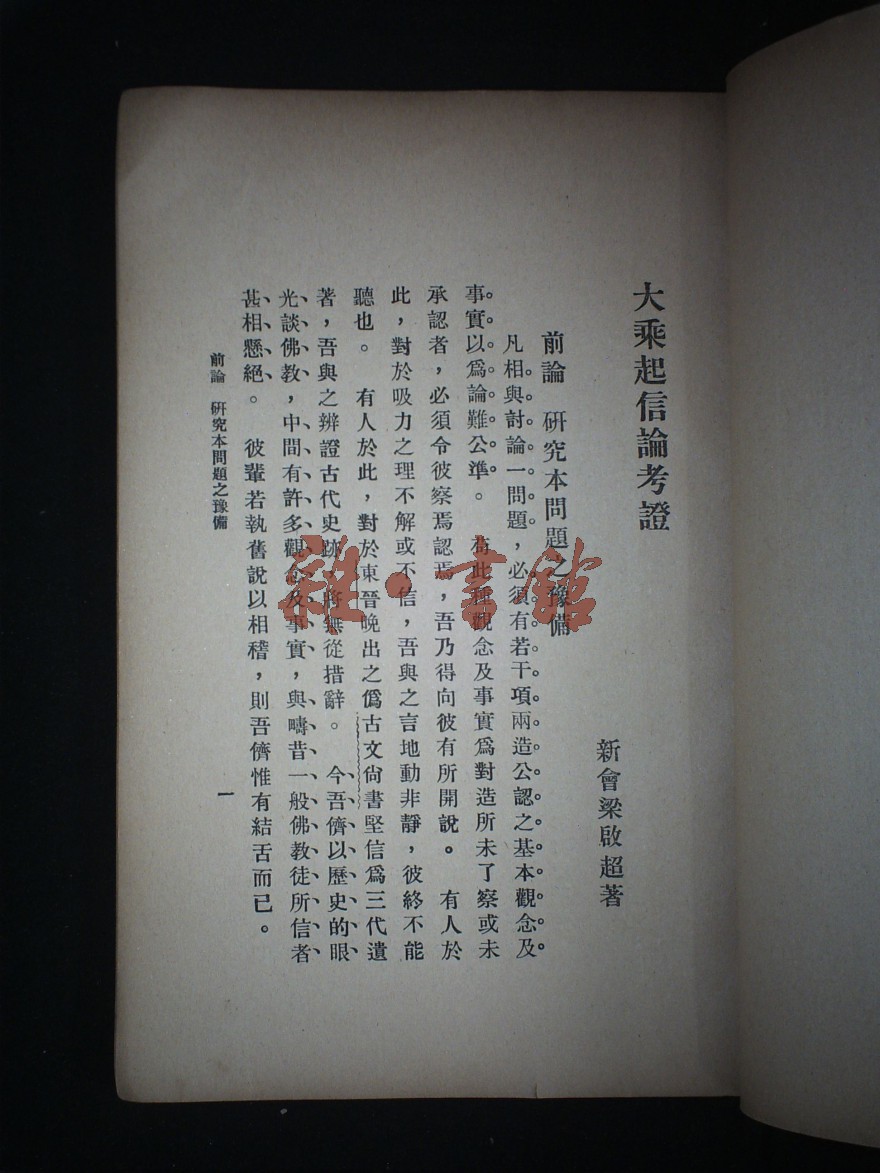 大乘起信論考證
新會梁啟超著
前論 研究本問題之豫備
凡相與討論一問題，必須有若干項兩造公認之基本觀念及
事實以爲論難公準。 苟此種觀念及事實爲對造所未了察或未
承認者，必須令彼察焉認焉，吾乃得向彼有所開說。 有人於
此，對於吸力之理不解或不信，吾與之言地動非靜，彼終不能
聽也。 有人於此，對於東晉晚出之僞古文尙書堅信爲三代遺
著，吾與之辨證古代史跡，將無從措辭。 今吾儕以歷史的眼
光談佛教，中間有許多觀念及事實，與疇昔一般佛教徒所信者
甚相懸絕。 彼輩若執舊說以相稽，則吾儕惟有結舌而已。
前論 研究本問題之豫備
一
雜·書館